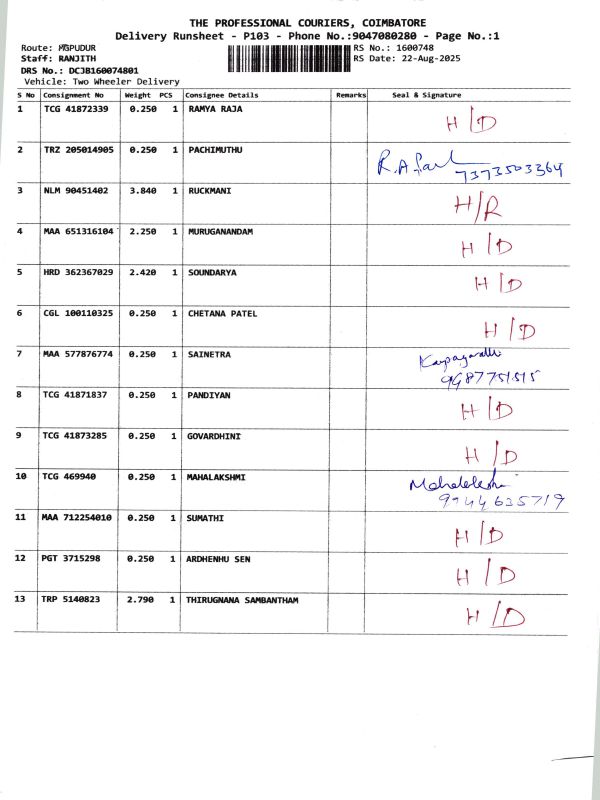 THE PROFESSIONAL COURIERS, COIMBATORE
Delivery Runsheet - P103 - Phone No.:9047080280 - Page No.:1
Route: MGPUDUR RS No.: 1600748
Staff: RANJITH RS Date: 22-Aug-2025
DRS No.: DCJB160074801
Vehicle: Two Wheeler Delivery
S No Consignment No Weight PCS Consignee Details Remarks Seal & Signature
1 TCG 41872339 0.250 1 RAMYA RAJA H/D
2 TRZ 205014905 0.250 1 PACHIMUTHU
7373503364
3 NLM 90451402 3.840 1 RUCKMANI H/R
4 MAA 651316104 2.250 1 MURUGANANDAM H/D
5 HRD 362367029 2.420 1 SOUNDARYA H/D
6 CGL 100110325 0.250 1 CHETANA PATEL H/D
7 MAA 577876774 0.250 1 SAINETRA
9487751515
8 TCG 41871837 0.250 1 PANDIYAN H/D
9 TCG 41873285 0.250 1 GOVARDHINI H/D
10 TCG 469940 0.250 1 MAHALAKSHMI
9944635719
11 MAA 712254010 0.250 1 SUMATHI H/D
12 PGT 3715298 0.250 1 ARDHENHU SEN H/D
13 TRP 5140823 2.790 1 THIRUGNANA SAMBANTHAM H/D